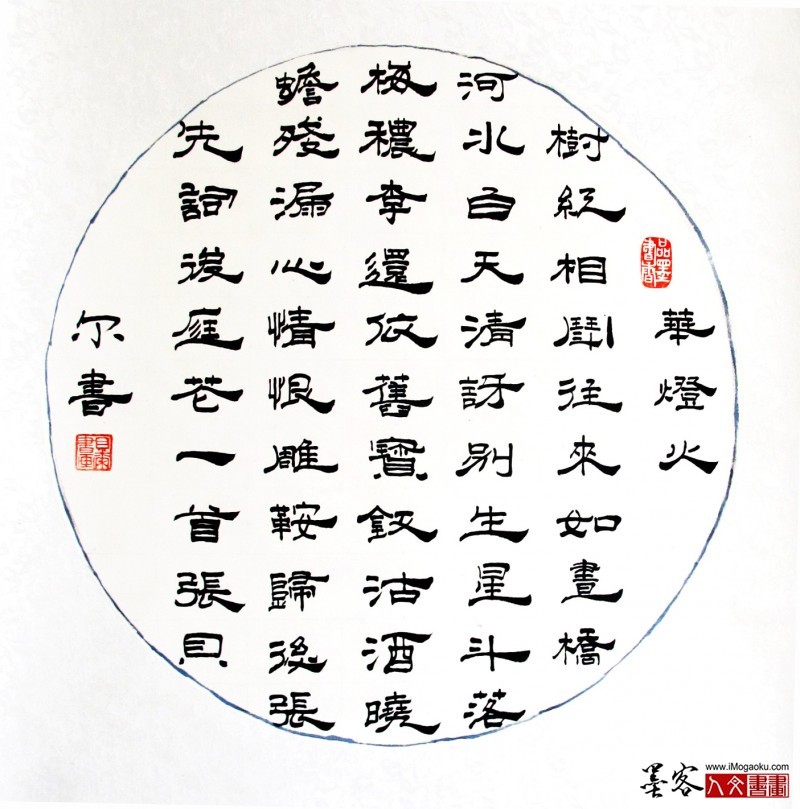 華燈火
樹紅相鬥往來如晝橋
河水白天清訝別生星斗落
梅穠李還依舊寶釵沽酒曉
蟾殘漏心情恨雕鞍歸後張
先詞後庭花一首張貝
尔書
品墨書香
www.iMogaoku.com
墨客
人文書畫